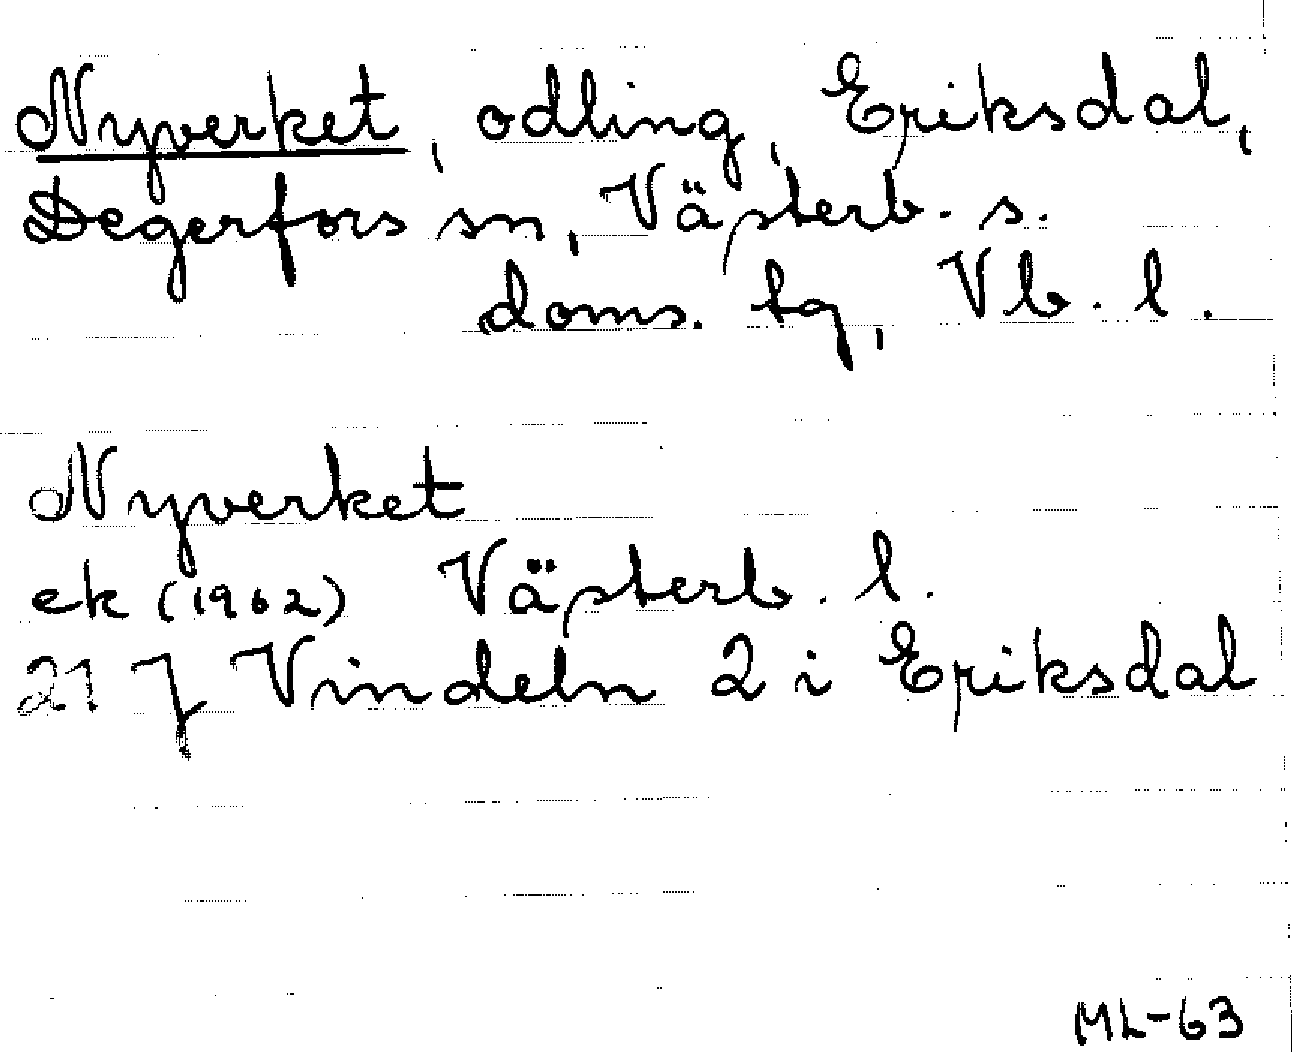 Nyverket, odling, Eriksdal,
Degerfors sn, Västerb. s.
doms. tg, Vb. l.
Nyverket
ek (1962) Västerb. l.
21 J Vindeln 2 i Eriksdal
ML-63